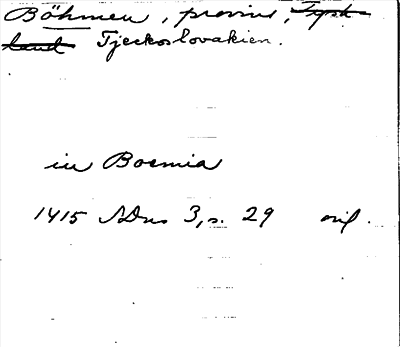 Böhmen, provins, Tysk-
land Tjeckoslovakien.
in Boemia
1415 SDns 3, s. 29 avil.